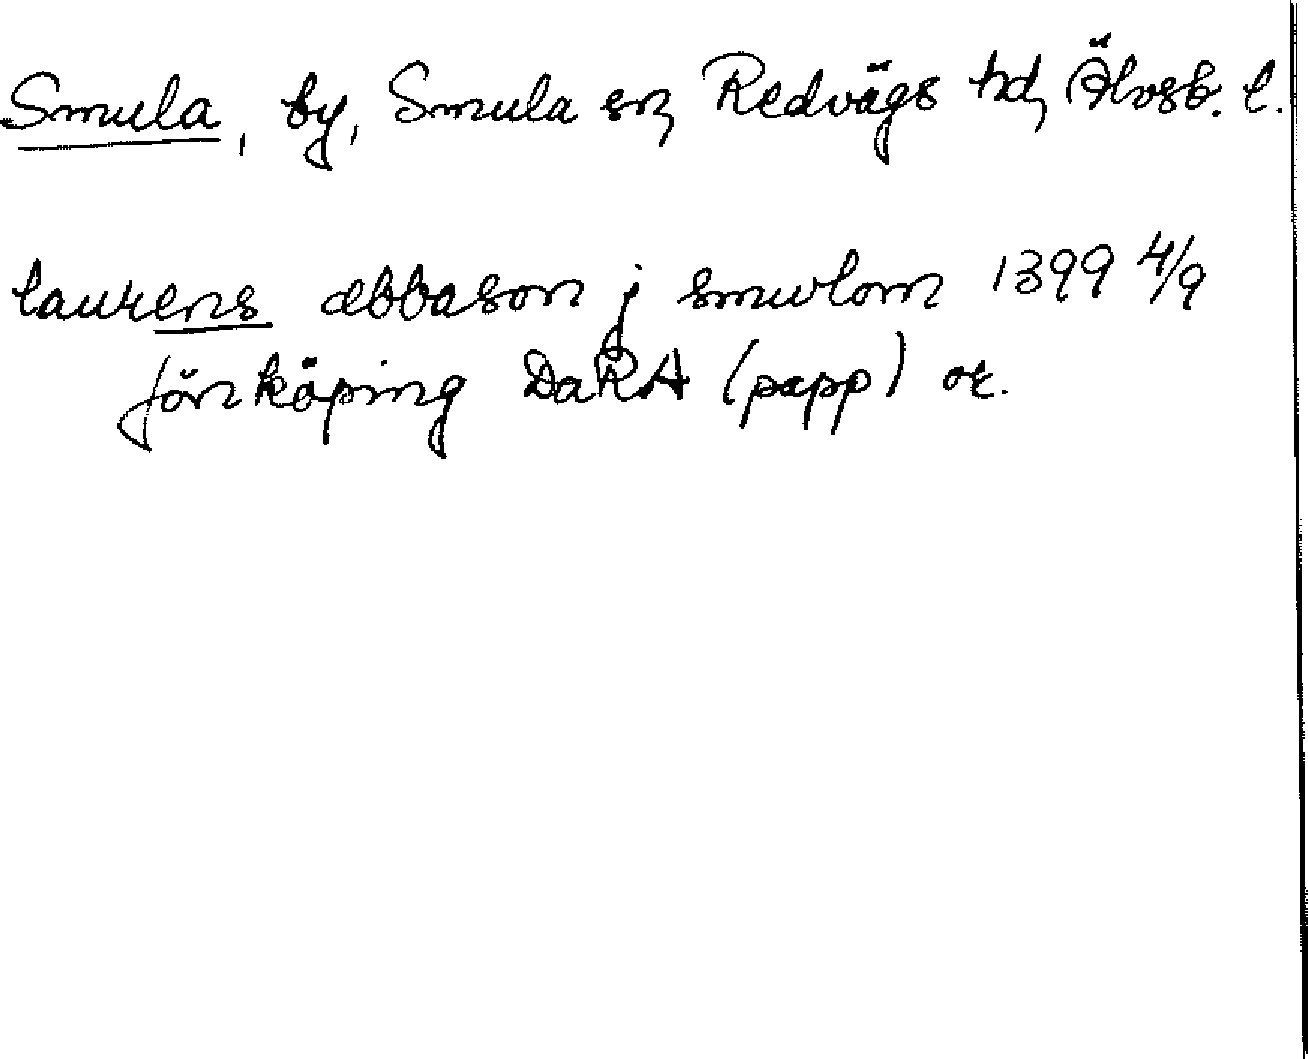 Smula, by, Smula sn, Redvägs hd, Älvsb. l.
laurens æbbason j smwlom 1399 4/9
Jönköping DaRA (papp) or.